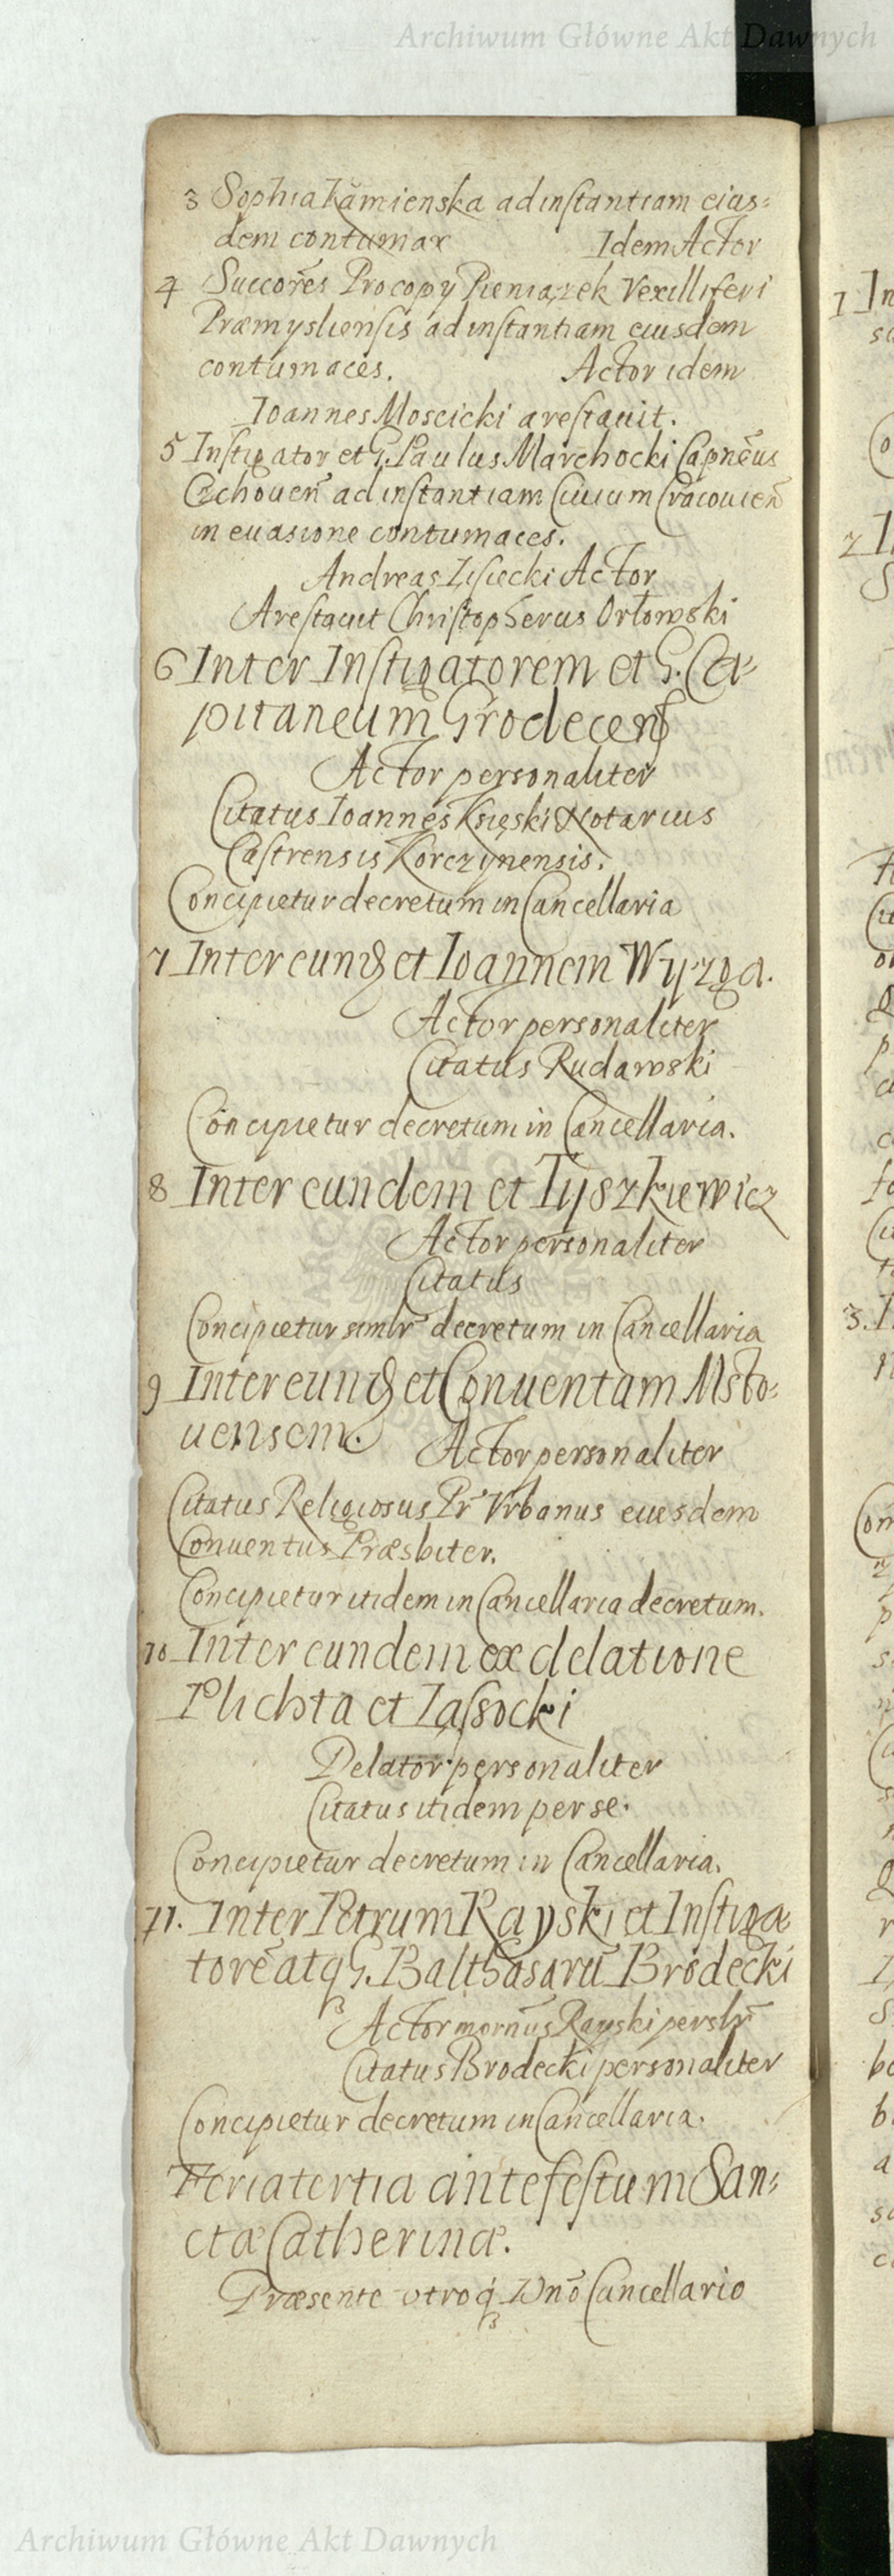 Archiwum Główne Akt Dawnych
3 Sophia Kamienska ad instantiam eius=
dem contumax Idem Actor
4 Succores Procopy Pieniązek Vexilliferi
Præmysliensis ad instantiam eiusdem
contumaces. Actor idem
Ioannes Moscicki arestauit.
5 Instigator et G. Paulus Marchocki Capneus
Czchouen ad instantiam Ciuium Cracouien
in euasione contumaces.
Andreas Lisiecki Actor
Arestauit Christopherus Orłowski
6 Inter Instigatorem et G. Ca=
pitaneum Grodecens
Actor personaliter
Citatus Ioannes Księski Notarius
Castrensis Korczynensis.
Concipietur decretum in Cancellaria
7 Inter eund et Ioannem Wyzga.
Actor personaliter
Citatus Rudawski
Concipietur decretum in Cancellaria.
8 Inter eundem et Tyszkiewicz
Actor personaliter
Citatus
Concipietur simlr decretum in Cancellaria
9 Inter eund et Conuentum Msto=
uensem. Actor personaliter
Citatus Religiosus Pr Vrbanus eiusdem
Conuentus Præsbiter.
Concipietur itidem in Cancellaria decretum.
10 Inter eundem ex delatione
Plichta et Lassocki
Delator personaliter
Citatus itidem per se.
Concipietur decretum in Cancellaria.
11. Inter Petrum Rayski et Instiga
tore atq G. Balthasaru Brodecki
Actor Rayski perslr
Citatus Brodecki personaliter
Concipietur decretum in Cancellaria.
Feria tertia ante festum San=
ctæ Catherinæ.
Præsente vtroq Dno Cancellario
Archiwum Główne Akt Dawnych